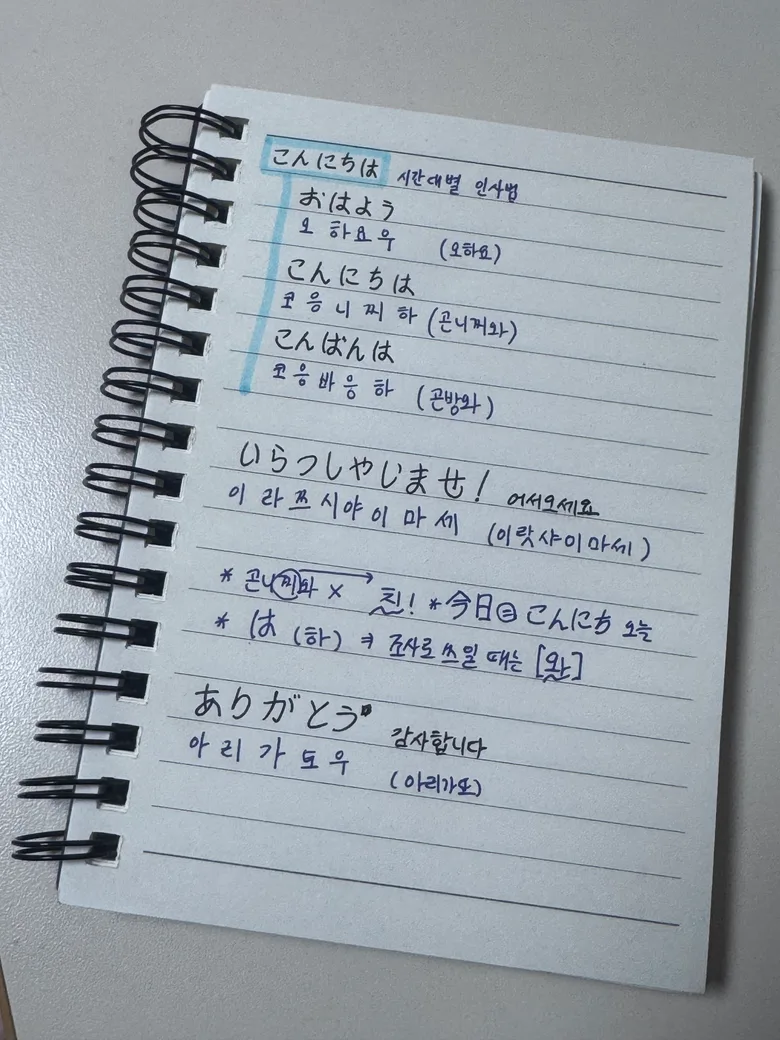 こんにちは 시간대별 인사법
おはよう
오 하요우 (오하요)
こんにちは
코 응 니 찌 하 (곤니찌와)
こんばんは
코 응 바 응 하 (곤방와)
いらっしゃいませ! 어서오세요
이 라 쯔 시 야 이 마 세 (이랏샤이마세)
* 곤니찌와 × → 친! * 今日 ⊜ こんにち 오늘
* は (하) ⇒ 조사로 쓰일 때는 [와]
ありがとう 감사합니다
아 리 가 토 우 (아리가또)